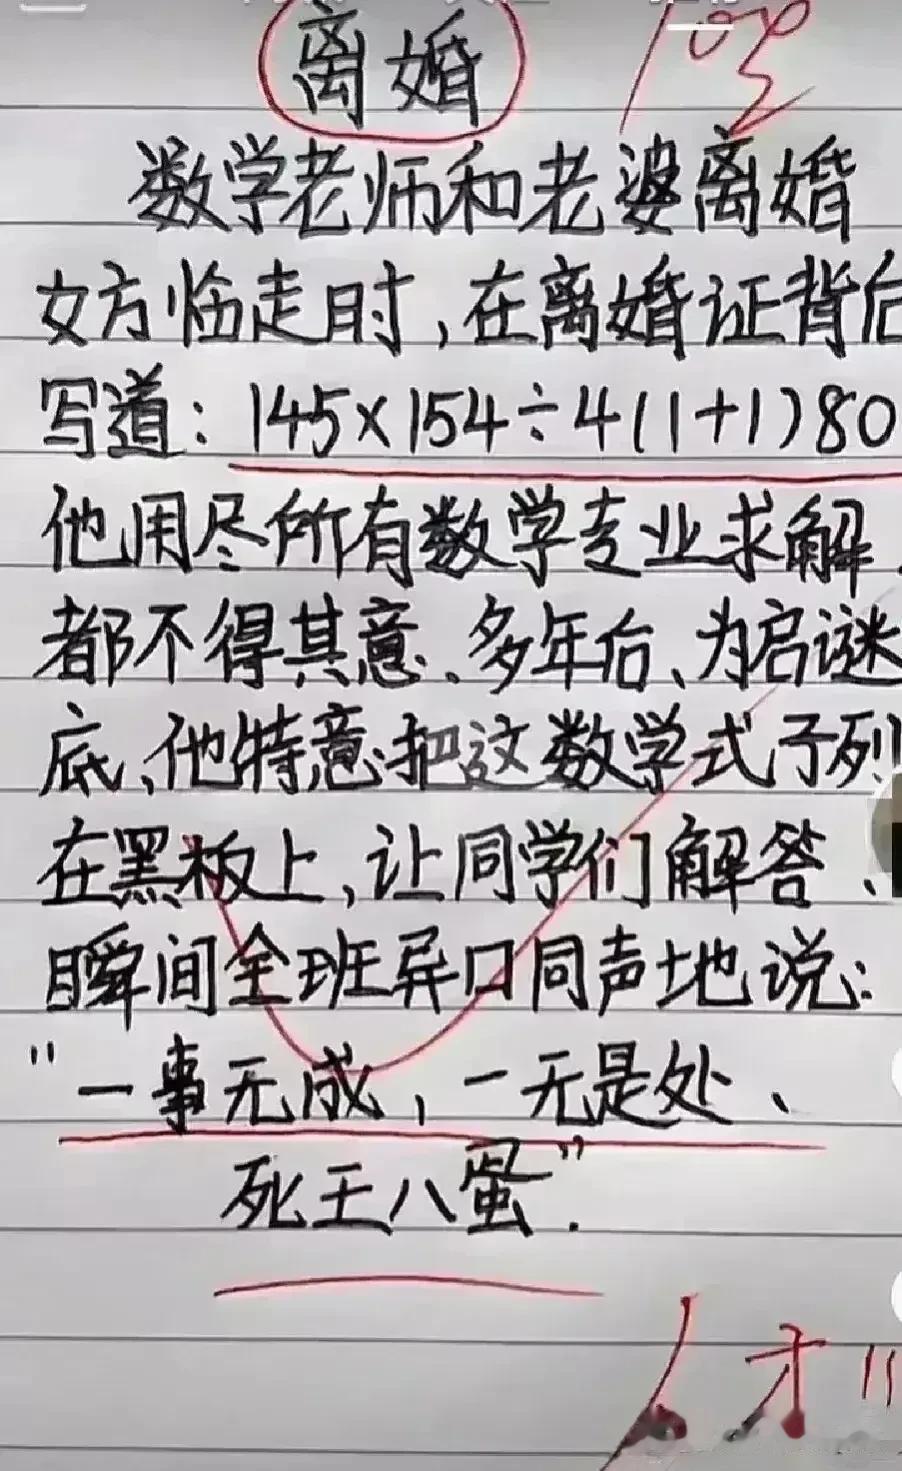 离婚
100
数学老师和老婆离婚
女方临走时,在离婚证背后
写道:145×154÷4(1+1)80
他用尽所有数学专业求解.
都不得其意.多年后、为启谜
底、他特意把这数学式子列
在黑板上,让同学们解答、
瞬间全班异口同声地说:
"一事无成,一无是处、
死王八蛋".
人才!!